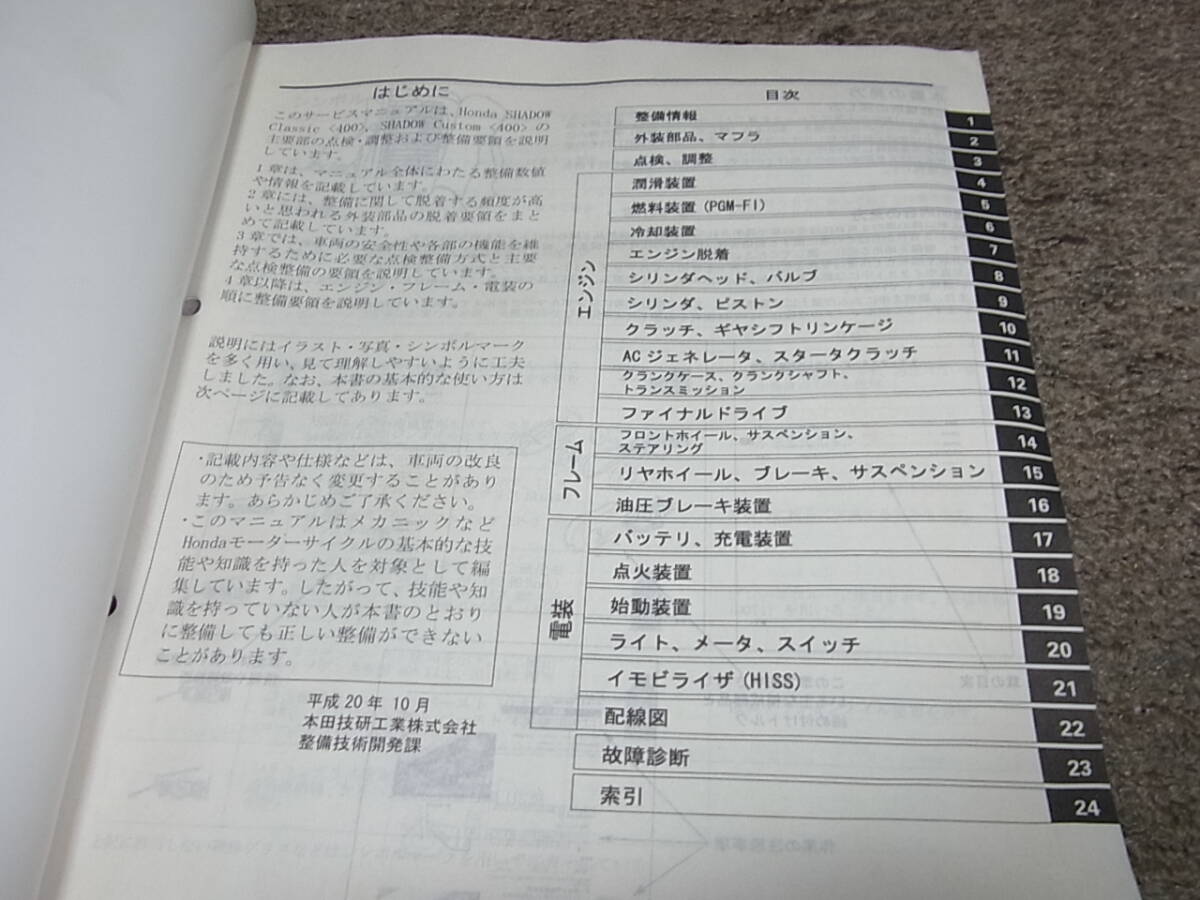 はじめに
このサービスマニュアルは、Honda SHADOW
Classic <400>, SHADOW Custom <400> の
主要部の点検・調整および整備要領を説明
しています。
1章は、マニュアル全体にわたる整備数値
や情報を記載しています。
2章には、整備に関して脱着する頻度が高
いと思われる外装部品の脱着要領をまと
めて記載しています。
3章では、車両の安全性や各部の機能を維
持するために必要な点検整備方式と主要
な点検整備の要領を説明しています。
4章以降は、エンジン・フレーム・電装の
順に整備要領を説明しています。
説明にはイラスト・写真・シンボルマーク
を多く用い、見て理解しやすいように工夫
しました。なお、本書の基本的な使い方は
次ページに記載してあります。
・記載内容や仕様などは、車両の改良
のため予告なく変更することがあり
ます。あらかじめご了承ください。
・このマニュアルはメカニックなど
Hondaモーターサイクルの基本的な技
能や知識を持った人を対象として編
集しています。したがって、技能や知
識を持っていない人が本書のとおり
に整備しても正しい整備ができない
ことがあります。
平成20年10月
本田技研工業株式会社
整備技術開発課
目次
整備情報 1
外装部品、マフラ 2
点検、調整 3
エンジン
潤滑装置 4
燃料装置(PGM-FI) 5
冷却装置 6
エンジン脱着 7
シリンダヘッド、バルブ 8
シリンダ、ピストン 9
クラッチ、ギヤシフトリンケージ 10
ACジェネレータ、スタータクラッチ 11
クランクケース、クランクシャフト、
トランスミッション 12
ファイナルドライブ 13
フレーム
フロントホイール、サスペンション、
ステアリング 14
リヤホイール、ブレーキ、サスペンション 15
油圧ブレーキ装置 16
電装
バッテリ、充電装置 17
点火装置 18
始動装置 19
ライト、メータ、スイッチ 20
イモビライザ(HISS) 21
配線図 22
故障診断 23
索引 24